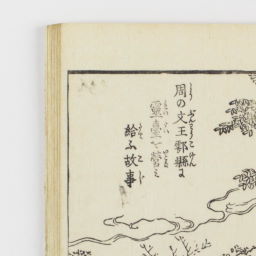 周の文王鄠縣に
靈臺を營み
給ふ故事